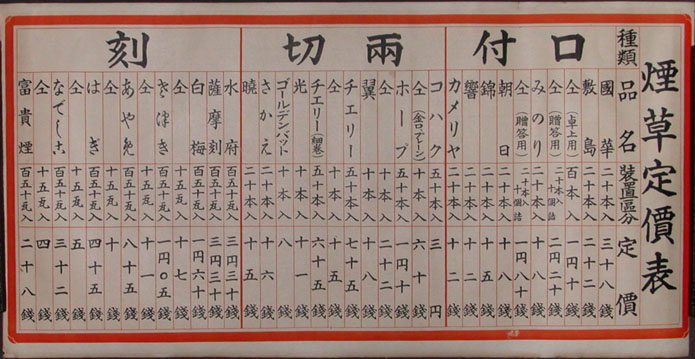 煙草定價表
種類 品名 裝置區分 定價
口付
國華 二十本入 三十八錢
敷島 二十本入 二十二錢
仝(卓上用) 百本入 一円十錢
仝(贈答用) 二十本入十個詰 二円二十錢
みのり 二十本入 十八錢
仝(贈答用) 二十本入十個詰 一円八十錢
朝日 二十本入 十八錢
錦 二十本入 十五錢
響 二十本入 十二錢
カメリヤ 二十本入 十二錢
兩切
コハク 五十本入 三円
仝(金口プレーン) 十本入 六十錢
ホープ 五十本入 一円十錢
仝 十本入 二十二錢
翼 十本入 十八錢
チエリー 五十本入 七十五錢
仝 十本入 十五錢
チエリー(細巻) 五十本入 六十五錢
光 十本入 十一錢
ゴールデンバット 十本入 八錢
さかえ 二十本入 十六錢
曉 二十本入 十五錢
刻
水府 百五十瓦入 三円三十錢
薩摩刻 百五十瓦入 三円三十錢
白梅 百五十瓦入 一円六十錢
仝 十五瓦入 十七錢
さつき 百五十瓦入 一円〇五錢
仝 十五瓦入 十一錢
あやめ 百五十瓦入 八十五錢
仝 十五瓦入 十錢
はぎ 百五十瓦入 四十五錢
仝 十五瓦入 五錢
なでしこ 百五十瓦入 三十二錢
仝 十五瓦入 四錢
富貴煙 百五十瓦入 二十八錢